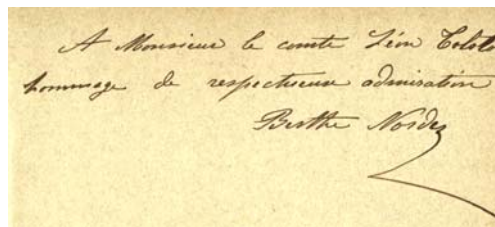 A Monsieur le comte Léon Tolsto
hommage de respectueuse admiration
Berthe Nordez